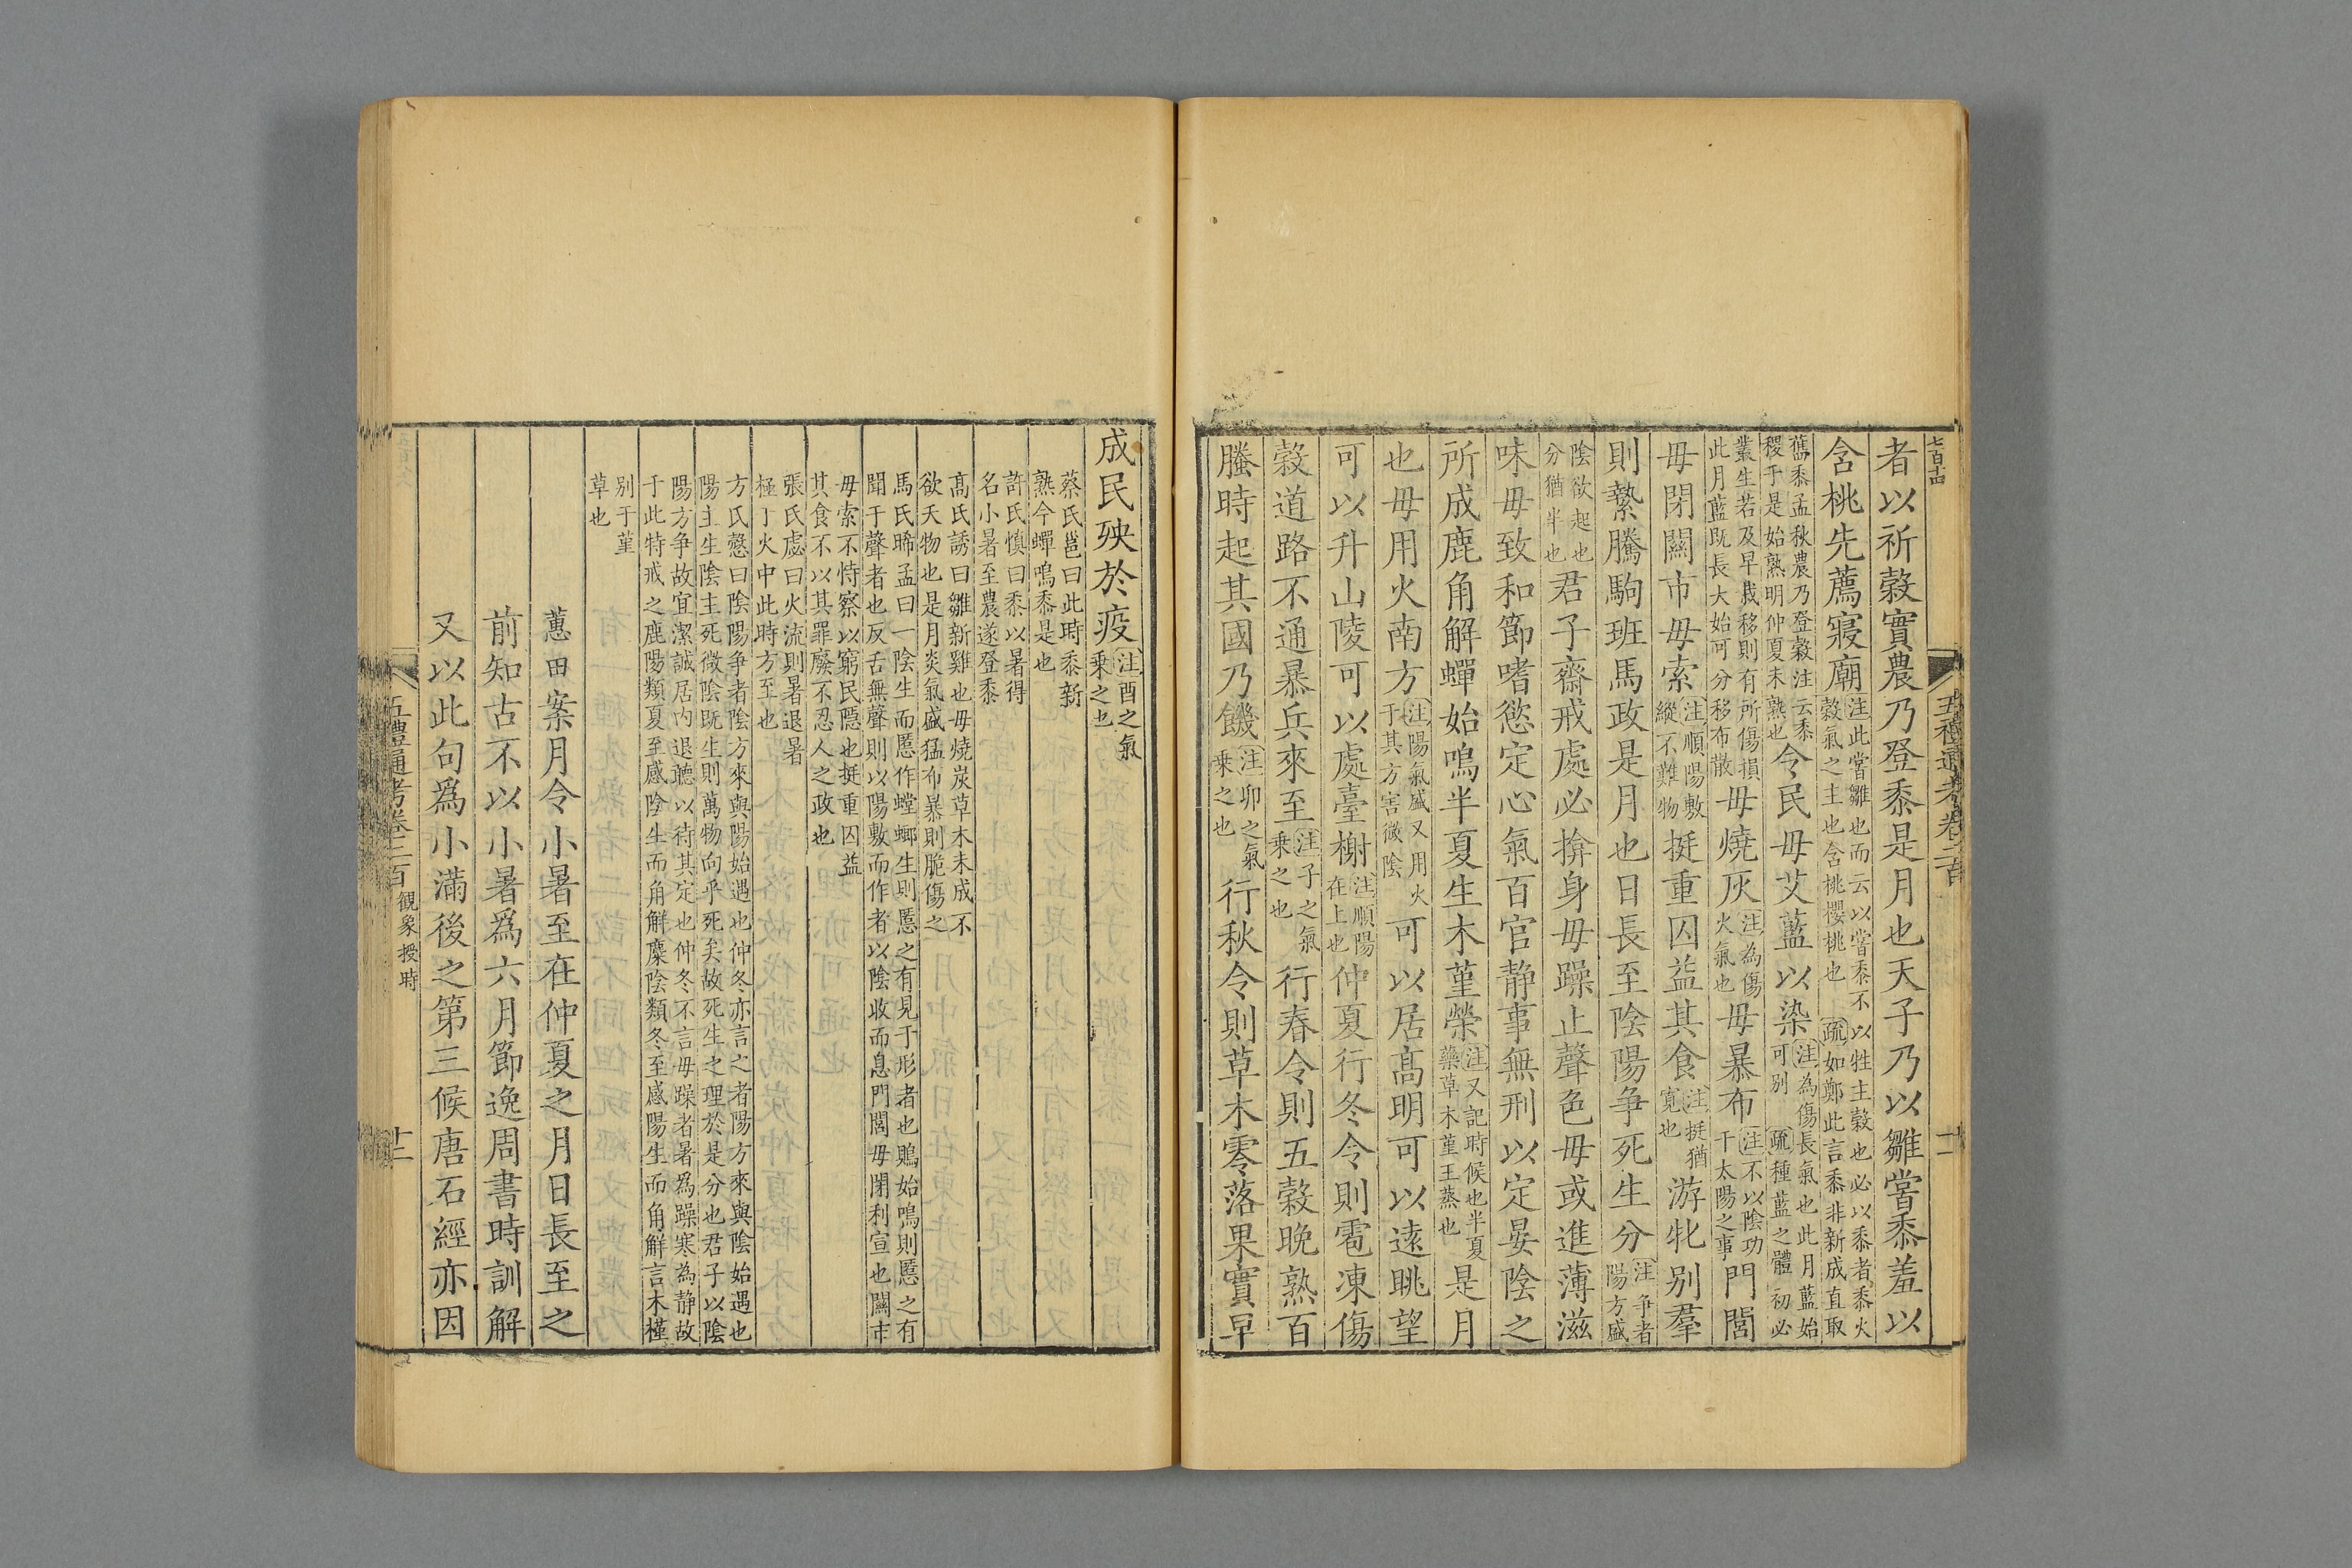 七百十四
五禮通考卷二百
十一
者以祈穀實農乃登黍是月也天子乃以雛嘗黍羞以
含桃先薦寢廟注此嘗雛也而云以嘗黍不以牲主穀也必以黍者黍火穀氣之主也含桃櫻桃也疏如鄭此言黍非新成直取
舊黍孟秋農乃登穀注云黍稷于是始熟明仲夏未熟也令民毋艾藍以染注為傷長氣也此月藍始可别疏種藍之體初必
叢生若及早栽移則有所傷損此月藍既長大始可分移布散毋燒灰注為傷火氣也毋暴布注不以陰功干太陽之事門閭
毋閉關市毋索注順陽敷縱不難物挺重囚益其食注挺猶寛也游牝别羣
則縶騰駒班馬政是月也日長至陰陽争死生分注争者陽方盛
陰欲起也分猶半也君子齋戒處必揜身毋躁止聲色毋或進薄滋
味毋致和節嗜慾定心氣百官静事無刑以定晏陰之
所成鹿角解蟬始鳴半夏生木堇榮注又記時候也半夏藥草木堇王蒸也是月
也毋用火南方注陽氣盛又用火于其方害微陰可以居髙明可以遠眺望
可以升山陵可以處臺榭注順陽在上也仲夏行冬令則雹凍傷
穀道路不通暴兵來至注子之氣乗之也行春令則五穀晚熟百
螣時起其國乃饑注卯之氣乗之也行秋令則草木零落果實早
成民殃於疫注酉之氣乗之也
蔡氏邕曰此時黍新
熟今蟬鳴黍是也
許氏慎曰黍以暑得
名小暑至農遂登黍
髙氏誘曰雛新雞也毋燒炭草木未成不
欲夭物也是月炎氣盛猛布暴則脆傷之
馬氏晞孟曰一陰生而慝作螳螂生則慝之有見于形者也鵙始鳴則慝之有
聞于聲者也反舌無聲則以陽敷而作者以陰收而息門閭毋閉利宣也關市
毋索不恃察以窮民隱也挺重囚益
其食不以其罪廢不忍人之政也
張氏虙曰火流則暑退暑
極丁火中此時方至也
方氏慤曰陰陽争者陰方來與陽始遇也仲冬亦言之者陽方來與陰始遇也
陽主生陰主死微陰既生則萬物向乎死矣故死生之理於是分也君子以陰
陽方争故宜潔誠居内退聽以待其定也仲冬不言毋躁者暑為躁寒為静故
于此特戒之鹿陽類夏至感陰生而角解麋陰類冬至感陽生而角解言木槿
别于堇
草也
蕙田案月令小暑至在仲夏之月日長至之
前知古不以小暑爲六月節逸周書時訓解
又以此句爲小滿後之第三候唐石經亦因
五禮通考卷二百
觀象授時
十二